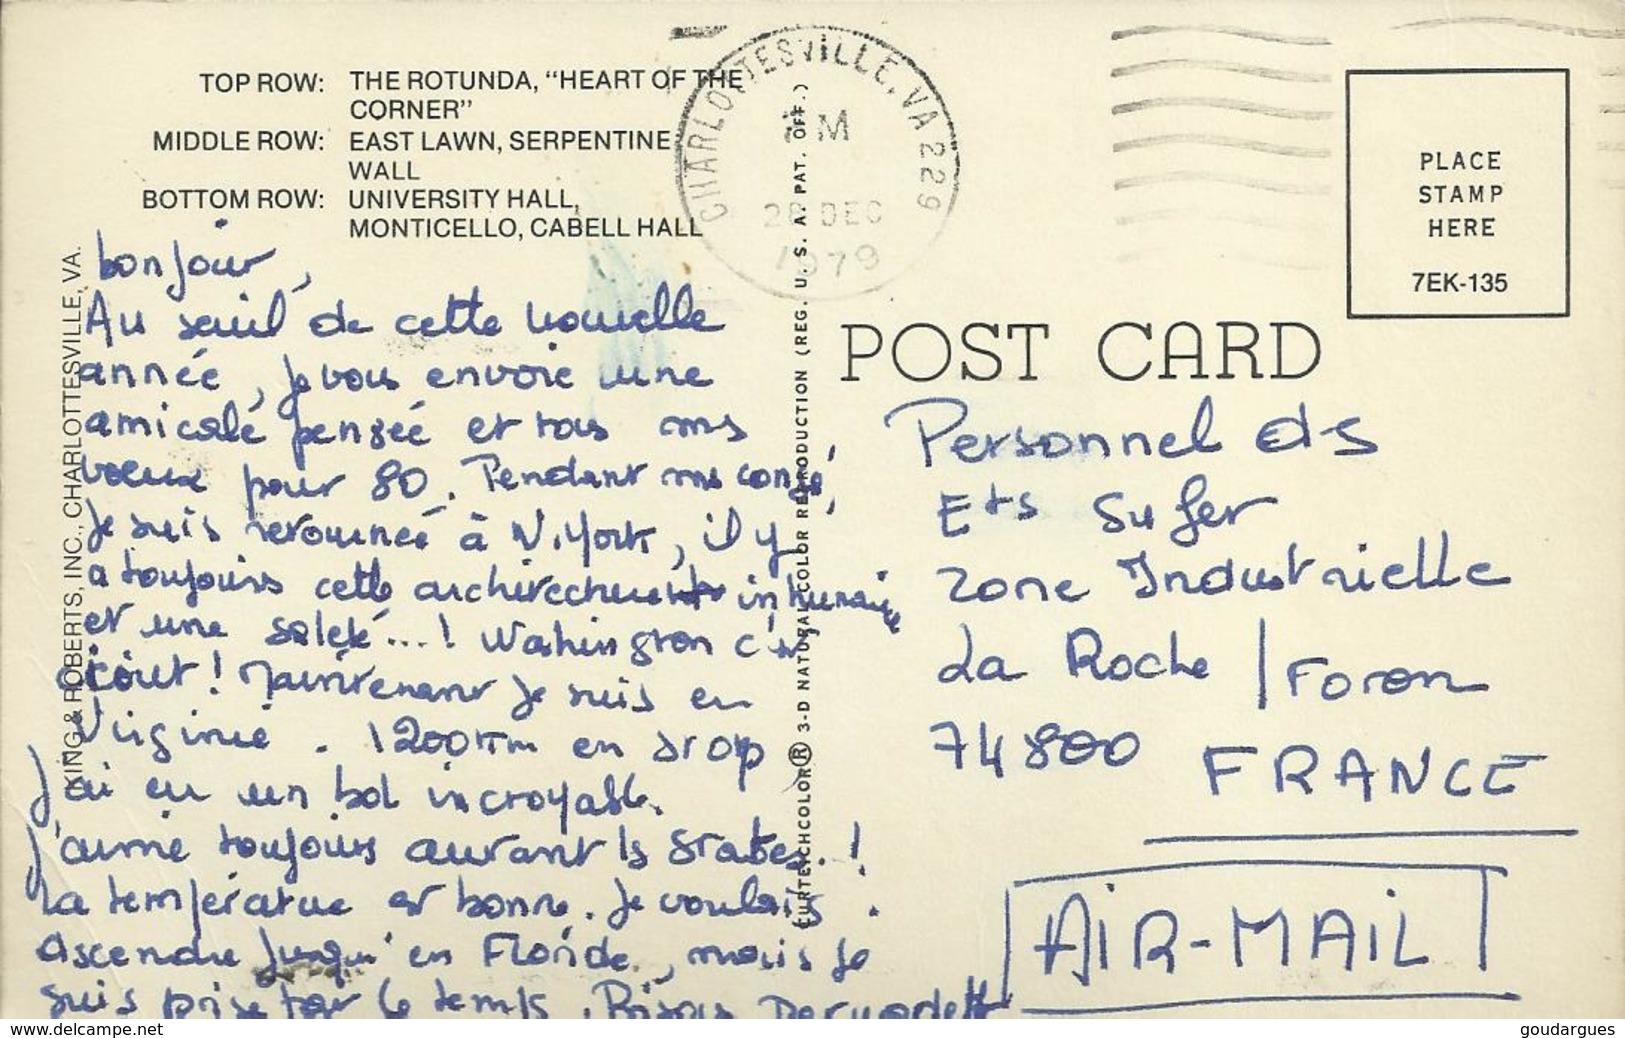 TOP ROW: THE ROTUNDA, "HEART OF THE
CORNER"
MIDDLE ROW: EAST LAWN, SERPENTINE
WALL
BOTTOM ROW: UNIVERSITY HALL,
MONTICELLO, CABELL HALL
KING & ROBERTS, INC., CHARLOTTESVILLE, VA.
bonjour,
Au seuil de cette nouvelle
année, je vous envoie une
amicale pensée et tous mes
voeux pour 80. Pendant mes congé
je suis retournée à N.York, il y
a toujours cette inhumaine
et une saleté...! Wahington c'est
! Maintenant je suis en
Virginie. 1200km en stop
J'ai eu un bol incroyable.
J'aime toujours autant ls states.!
La température est bonne. Je voulais
descendre jusqu'en Floride, mais je
suis prise par le temps. Bisous Bernadette
CURTEICHCOLOR® 3-D NATURAL COLOR REPRODUCTION (REG. U. S. A. PAT. OFF.)
CHARLOTTESVILLE, VA 229
M
28 DEC
1979
PLACE
STAMP
HERE
7EK-135
POST CARD
Personnel ds
Ets Sufer
Zone Industrielle
La Roche / Foron
74800
FRANCE
AIR-MAIL
www.delcampe.net
goudargues